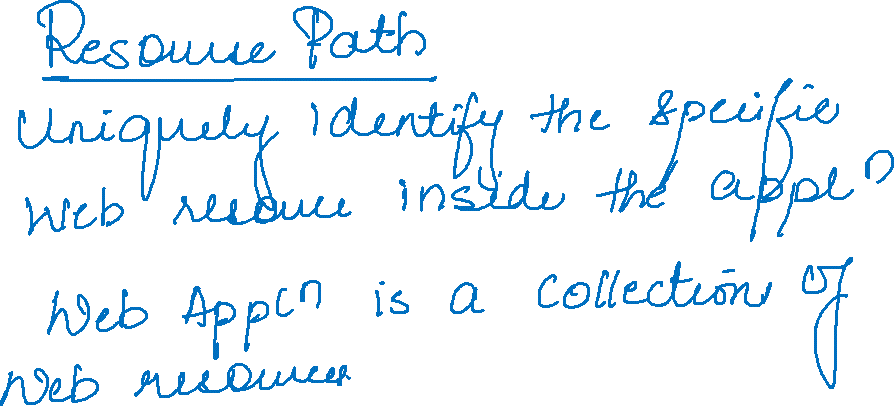 Resource Path
Uniquely identify the specific
Web resource inside the appln
Web Appln is a collection of
Web resources